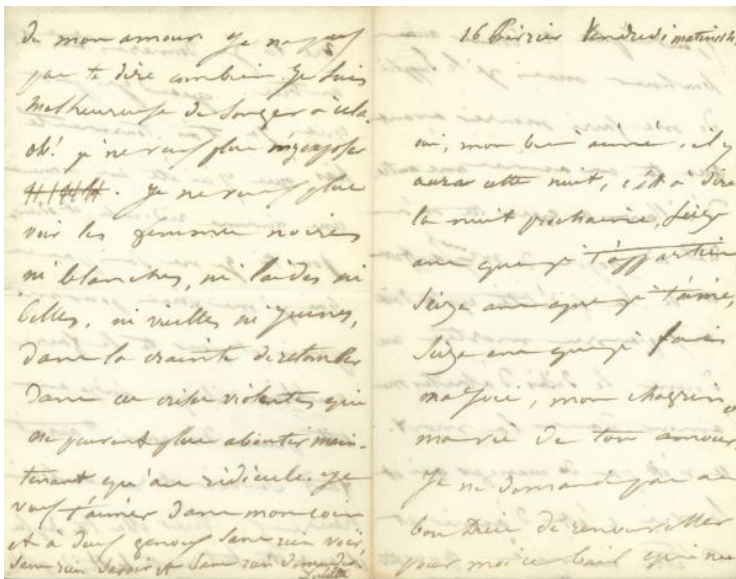 de mon amour. Je ne peux
pas te dire combien je suis
malheureuse de songer à cela.
oh! je ne veux plus m'y exposer
Je ne veux plus
voir les femmes noires
ni blanches, ni laides ni
belles, ni vieilles ni jeunes,
dans la crainte de retomber
dans ces crises violentes qui
ne peuvent plus aboutir main-
tenant qu'au ridicule. Je
veux t'aimer dans mon coin
et à deux genoux sans rien voir,
sans rien savoir et sans rien demander
Juliette
16 février Vendredi matin
oui, mon bien aimé, il y
aura cette nuit, c'est à dire
la nuit prochaine, seize
ans que je t'appartiens
seize ans que je t'aime,
seize ans que je fais
ma joie, mon chagrin et
ma vie de ton amour.
Je ne demande pas au
bon Dieu de renouveller
pour moi ce bail qui ne